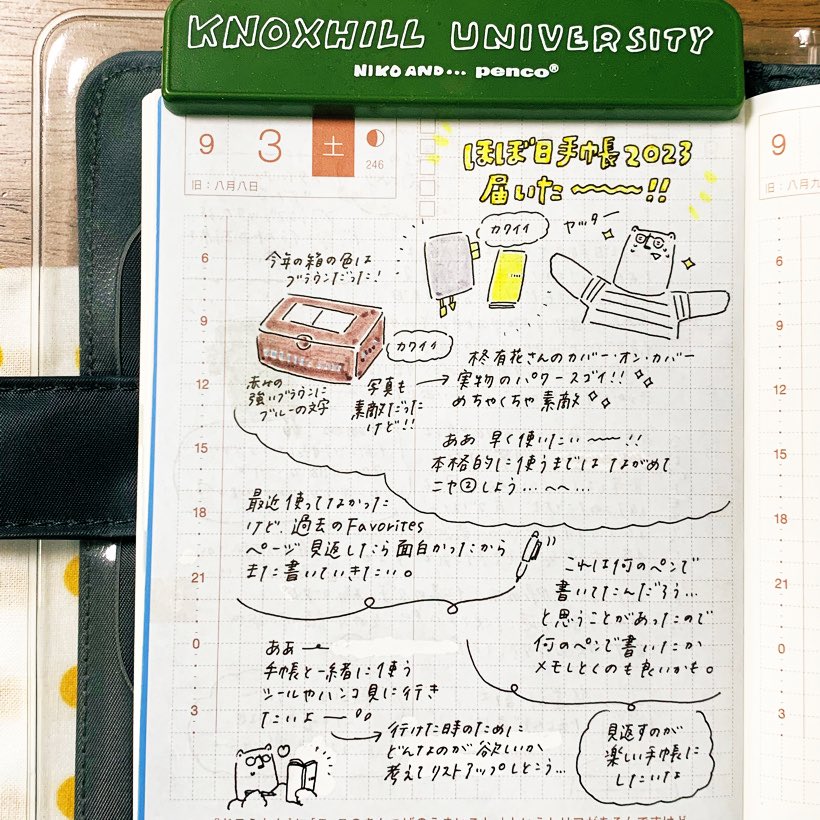 KNOXHILL UNIVERSITY
NIKO AND... penco®
9 3 土
246
旧：八月八日
ほぼ日手帳2023
届いた〜〜〜!!
カワイイ
ヤッター
今年の箱の色は
ブラウンだった!
カワイイ
赤みの
強いブラウンに
ブルーの文字
写真も
素敵だった
けど!!
柊有花さんのカバー・オン・カバー
実物のパワースゴイ!!
めちゃくちゃ素敵
ああ 早く使いたい〜〜!!
本格的に使うまでは ながめて
ニヤ②しよう…へへ…
最近使ってなかった
けど、過去のFavorites
ページ見返したら面白かったから
また書いていきたい。
これは何のペンで
書いてたんだろう…
と思うことがあったので
何のペンで書いたか
メモしとくのも良いかも。
ああー
手帳と一緒に使う
ツールやハンコ見に行き
たいよー
行けた時のために
どんなのが欲しいか
考えてリストアップしとこう…
見返すのが
楽しい手帳に
したいな
6
9
12
15
18
21
0
3
9
旧：八月九
6
9
12
15
18
21
0
3